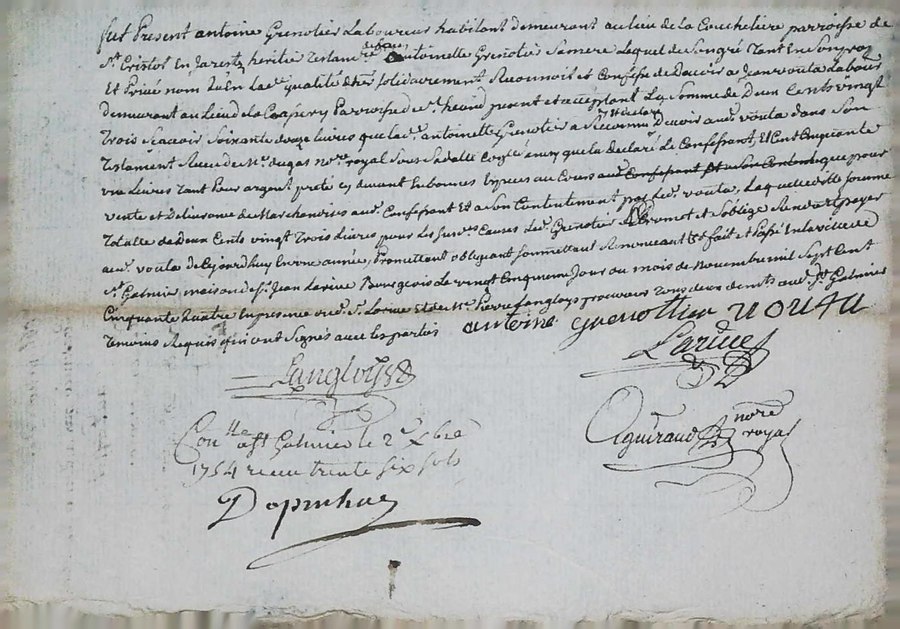 fut Present antoine Grenotier Laboureur habitant demeurant au lieu de la Coucheliere parroisse de
St Cristot En Jarestz heritier Testamre deffunte antoinette Grenotier Sa mere Lequel de Son gré Tant En Son propre
Et Privé nom qu'En lade qualité d'her solidairement Reconnoit et Confesse de devoir a Jean voüta Labour
demeurant au Lieu de la Parroisse de St heand present et acceptant La Somme de Deux Cents vingt
Trois Scavoir Soixante douze livres que lade antoinette Grenotier a Reconnu Devoir aud. voüta dans Son
Testament Receu de Me dugas nore royal Sous Sa datte que la declaré Le Confessant, Et Cent Cinquante
une Livres Tant Pour argent prété cy devant En bonnes Especes au Cours que pour
vente et Delivrance de Marchandises aud. Confessant Et a Son Contentement par led. voüta, Laquelle ditte somme
Totalle de Deux Cents vingt Trois livres pour Les Susd. Causes Led. Grenotier Promet et S'oblige Rendre et payer
aud. voüta de Cejourdhuy En une année, Promettant obligeant soumettant Renonceant &a fait et Passé En la ville de
St Galmier maison de Sr Jean Larüe Bourgeois Le vingt Cinquieme Jour du mois de Novembre mil Sept Cent
Cinquante quatre En presence dud. Sr Larüe et de Me Pierre Langloys procureur Tous deux demts aud. St Galmier
Temoins Requis qui ont Signés avec les parties antoine Grenottier VOUTA
Larüe
Langloys
Aguiraud nore
royal
Conlle a St Galmier le 2e Xbre
1754 receu trente six sols